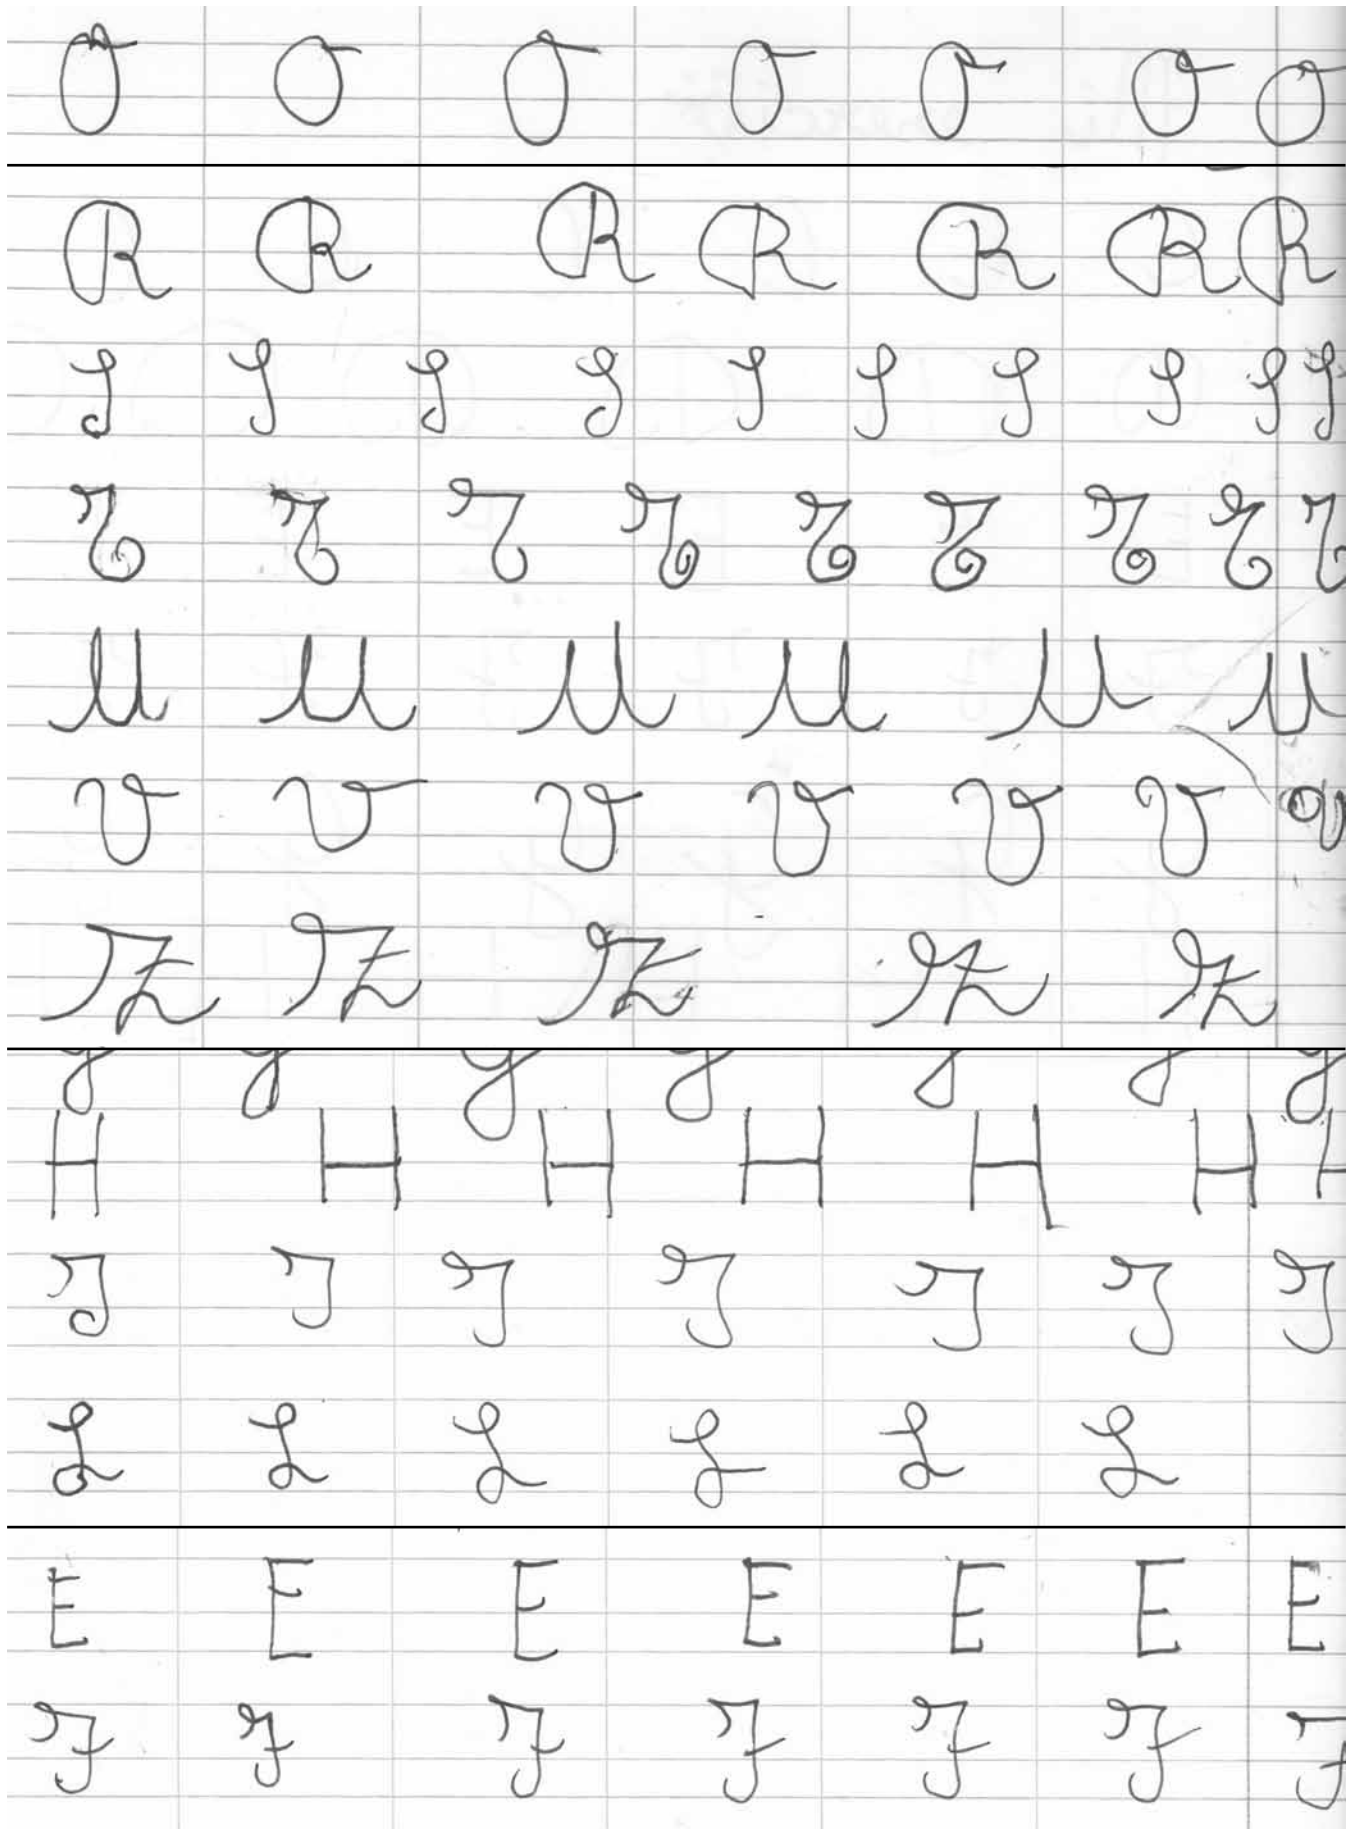 O O O O O O O
R R R R R R R
S S S S S S S S S S
T T T T T T T T T
U U U U U U
V V V V V V V
Z Z Z Z Z
H H H H H H H
I I I I I I I
L L L L L L
E E E E E E E
F F F F F F F